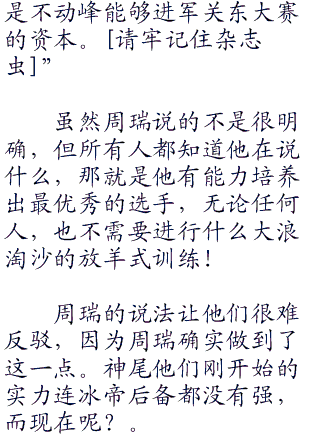 是不动峰能够进军关东大赛
的资本。[请牢记住杂志
虫]”
虽然周瑞说的不是很明
确，但所有人都知道他在说
什么，那就是他有能力培养
出最优秀的选手，无论任何
人，也不需要进行什么大浪
淘沙的放羊式训练！
周瑞的说法让他们很难
反驳，因为周瑞确实做到了
这一点。神尾他们刚开始的
实力连冰帝后备都没有强，
而现在呢？。